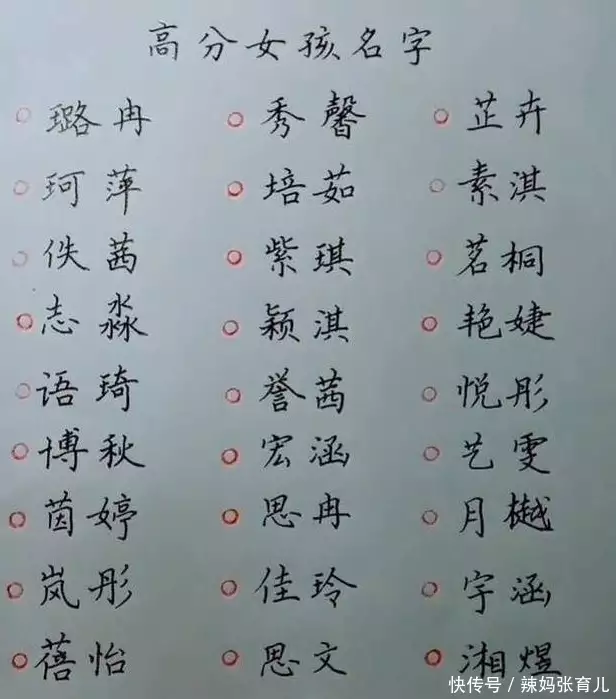 高分女孩名字
璐冉 秀馨 芷卉
珂萍 培茹 素淇
佚茜 紫琪 茗桐
志淼 颖淇 艳婕
语琦 誉茜 悦彤
博秋 宏涵 艺雯
茵婷 思冉 月樾
岚彤 佳玲 宇涵
蓓怡 思文 湘煜
快传号/辣妈张育儿